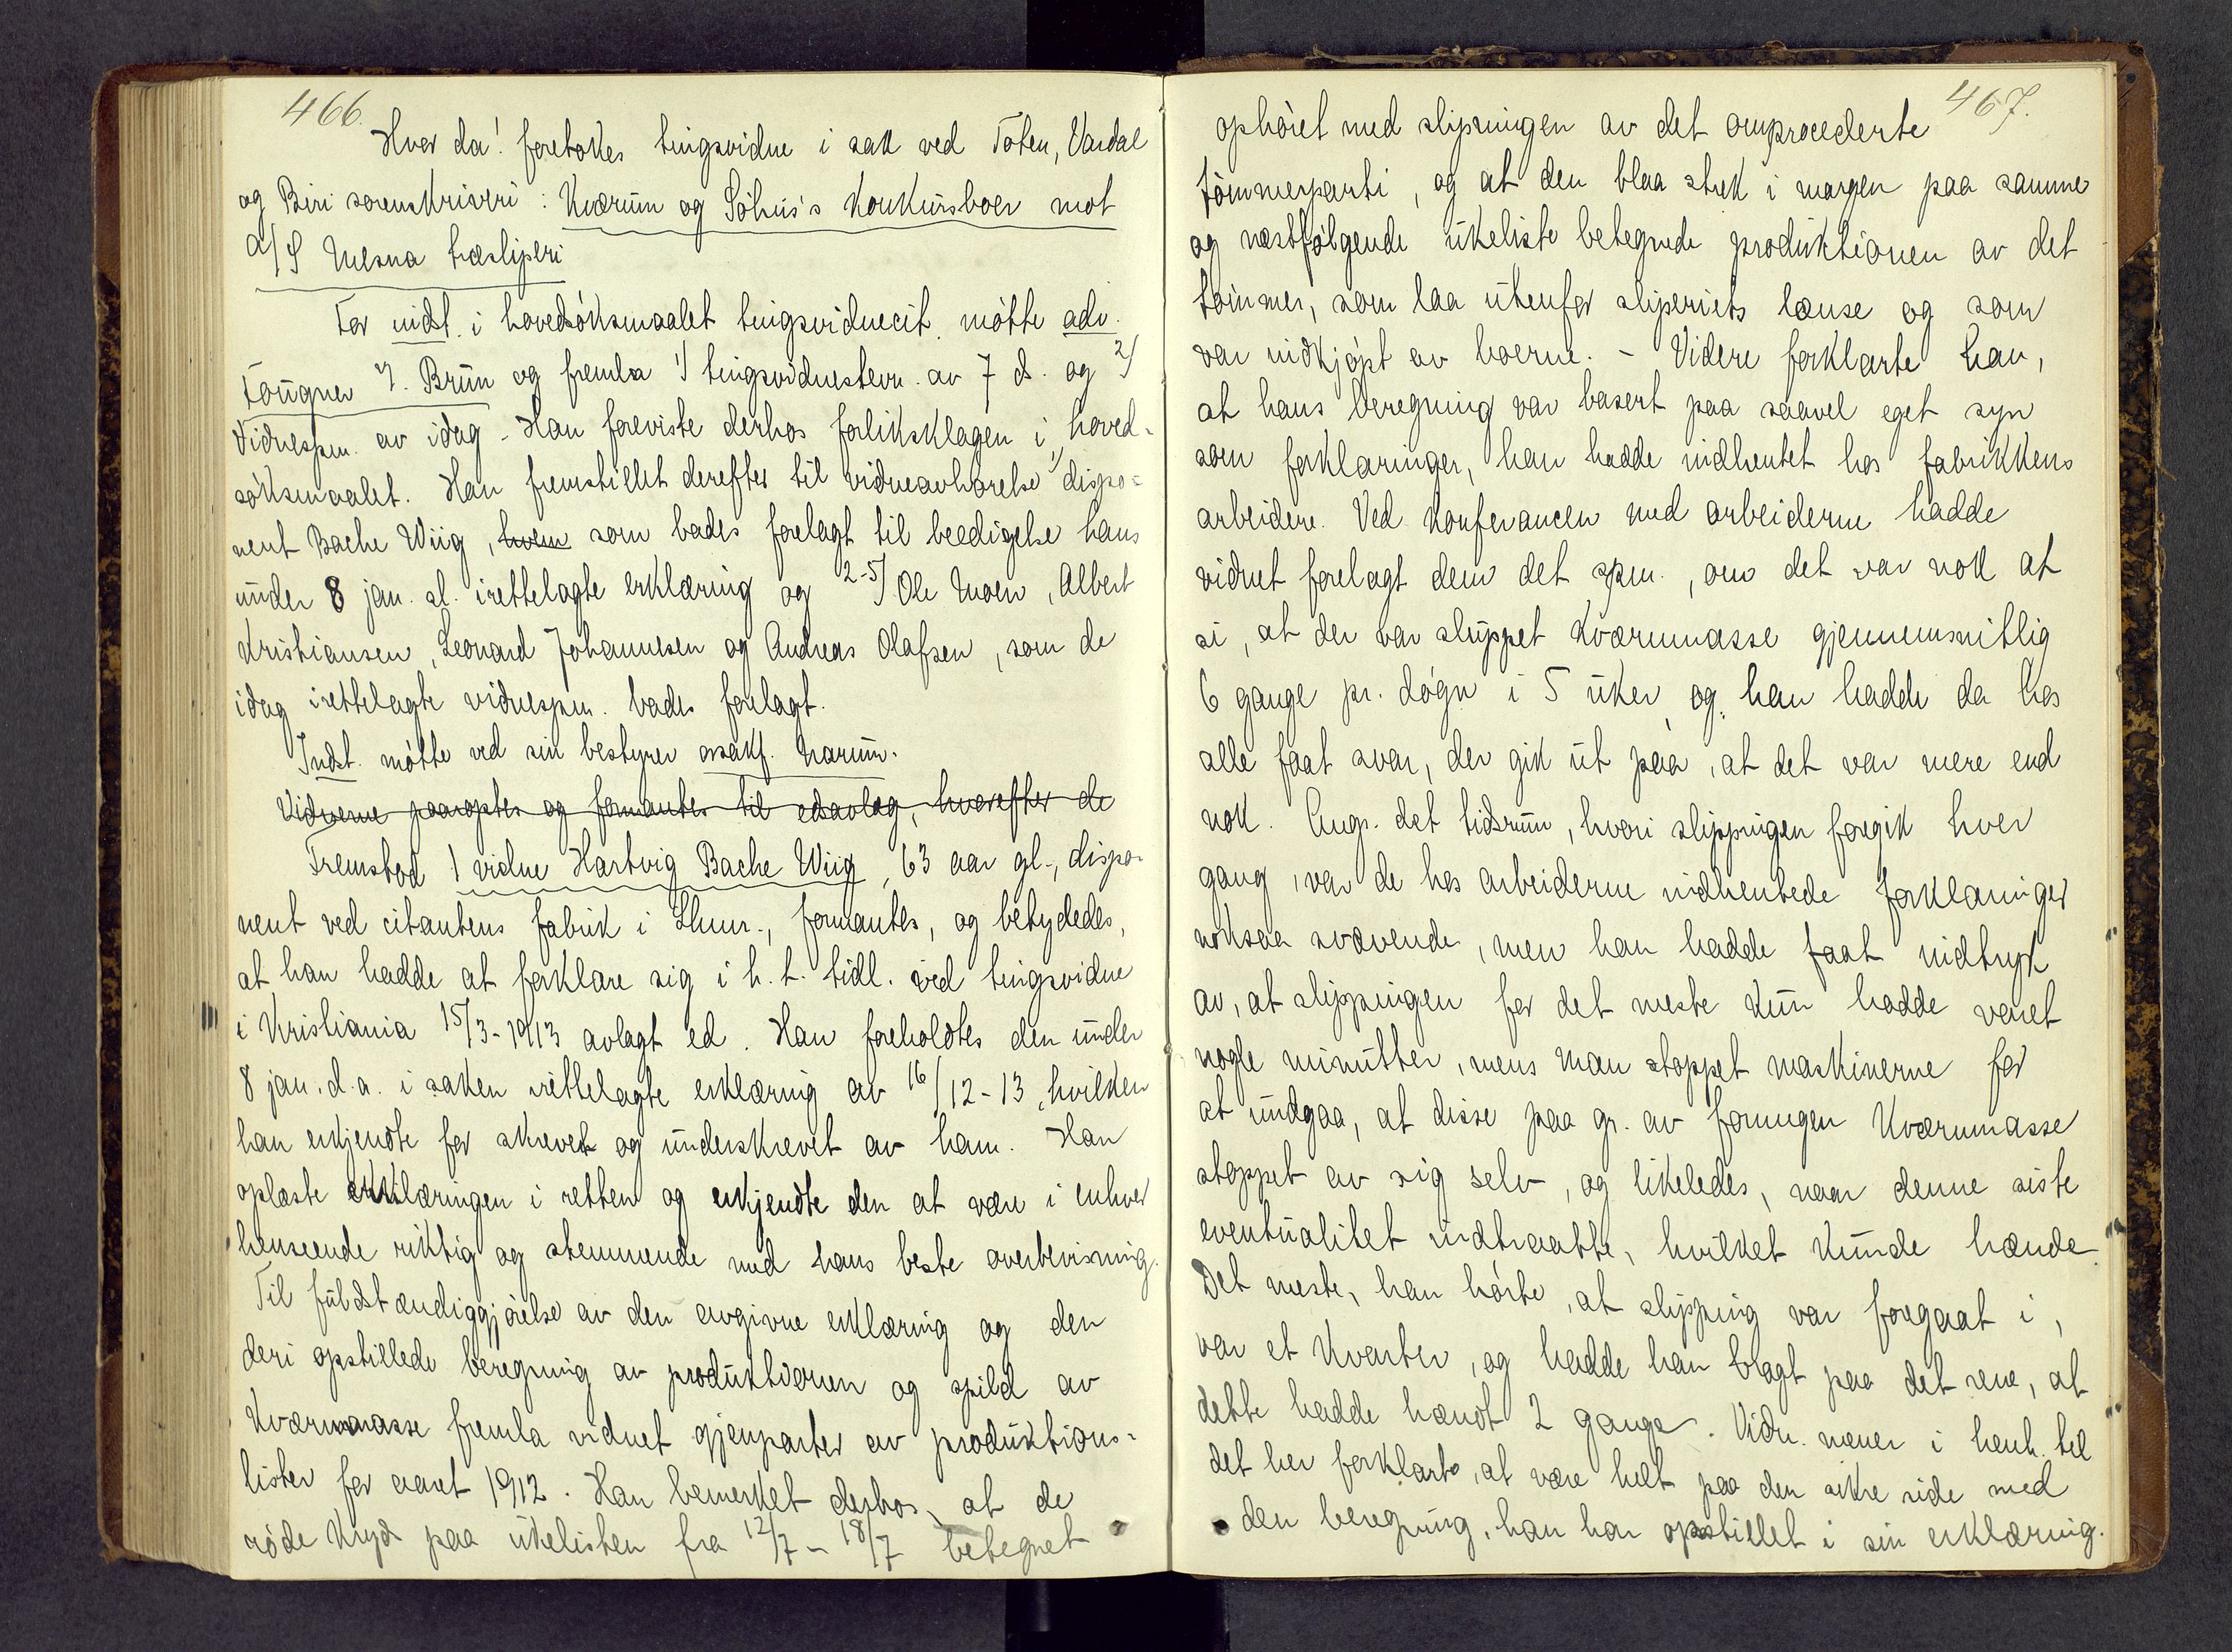 466.
Hvor da! foretokes tingsvidne i sak ved Toten, Vardal
og Biri sorenskriveri: Kværum og Söhus's Konkursboer mot
A/S Mesna træsliperi
For indst. i hovedsöksmaalet tingsvidnecit. mötte adv.
Fougner v. Brun og fremla 1) tingsvidnestevn. av 7 ds. og 2)
Vidnespm. av idag. Han foreviste derhos forliksklagen i hoved-
söksmaalet. Han fremstillet derefter til vidneavhörelse 1) dispo-
nent Bache Wiig, hvem som bades forelagt til beedigelse hans
under 8 jan. sl. irettelagte erklæring og 2-5) Ole Moen, Albert
Kristiansen, Leonard Johannesen og Andreas Olafsen, som de
idag irettelagte vidnespm. bades forelagt.
Indst. mötte ved sin bestyrer osakf. Narum.
Vidnerne paaroptes og formantes til edsavlæg, hvorefter de
Fremstod 1 vidne Hartvig Bache Wiig, 63 aar gl., dispo-
nent ved citantens fabrik i Lhmr., formantes, og betydedes,
at han hadde at forklare sig i h. t. tidl. ved tingsvidne
i Kristiania 15/3-1913 avlagt ed. Han foreholdtes den under
8 jan. d.a. i saken irettelagte erklæring av 16/12-13, hvilken
han erkjendte for skrevet og underskrevet av ham. Han
oplæste erklæringen i retten og erkjendte den at være i enhver
henseende riktig og stemmende med hans beste overbevisning.
Til fuldstændiggjörelse av den avgivne erklæring og den
deri opstillede beregning av produktionen og spild av
Kværnmasse fremla vidnet gjenparter av produktions-
lister for aaret 1912. Han bemerket derhos, at de
röde Kryds paa ukelisten fra 12/7 - 18/7 betegnet
467.
ophöret med slipningen av det omprocederte
tömmerparti, og at den blaa strek i margen paa samme
og næstfölgende ukeliste betegnede produktionen av det
tömmer, som laa utenfor sliperiets lænse og som
var indkjöpt av boerne. - Videre forklarte han,
at hans beregning var basert paa saavel eget syn
som forklaringer, han hadde indhentet hos fabrikkens
arbeidere. Ved Konferancen med arbeiderne hadde
vidnet forelagt dem det spm., om det var nok at
si, at der var sluppet Kværnmasse gjennemsnitlig
6 gange pr. dögn i 5 uker, og han hadde da hos
alle faat svar, der gik ut paa, at det var mere end
nok. Ang. det tidsrum, hvori slippingen foregik hver
gang, var de hos arbeiderne indhentede forklaringer
noksaa svævende, men han hadde faat indtryk
av, at slippingen for det meste kun hadde varet
nogle minutter, mens man stoppet maskinerne for
at undgaa, at disse paa gr. av formegen Kværnmasse
stoppet av sig selv, og likeledes, naar denne siste
eventualitet indtraatte, hvilket kunde hænde.
Det meste, han hörte, at slipping var foregaat i,
var et Kvarter, og hadde han bragt paa det rene, at
dette hadde hændt 2 gange. Vidn. mener i henh. til
det her forklarte, at være helt paa den sikre side med
den beregning, han har opstillet i sin erklæring.